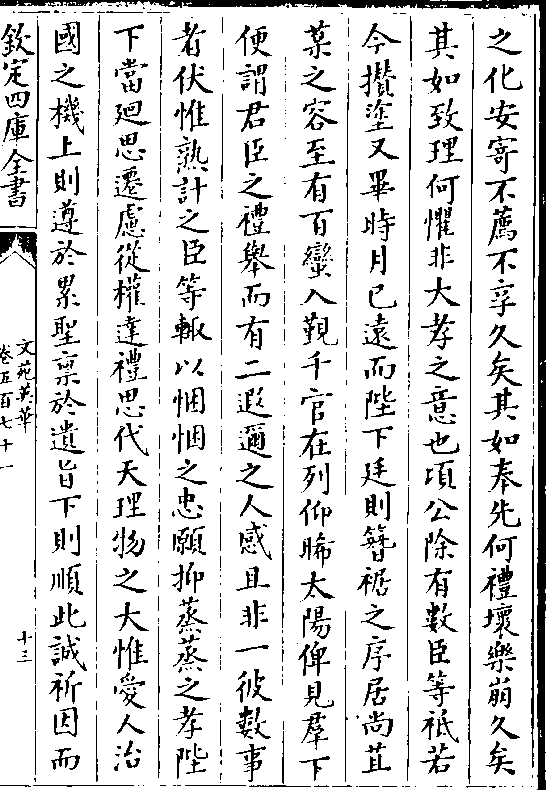 之化安寄不薦不享久矣其如奉先何禮壞樂崩久矣
其如致理何懼非大孝之意也頃公除有數臣等祗若
今攢塗又畢時月已遠而陛下廷則簪裾之序居尚苴
菜之容至有百蠻入覲千官在列仰睎太陽俾見羣下
便謂君臣之禮舉而有二遐邇之人感且非一彼數事
者伏惟熟計之臣等輙以悃悃之忠願抑蒸蒸之孝陛
下當廻思遷慮從權達禮思代天理物之大惟愛人治
國之機上則遵於累聖禀於遺旨下則順此誠祈因而
欽定四庫全書
文苑英華
卷五百七十一
十三